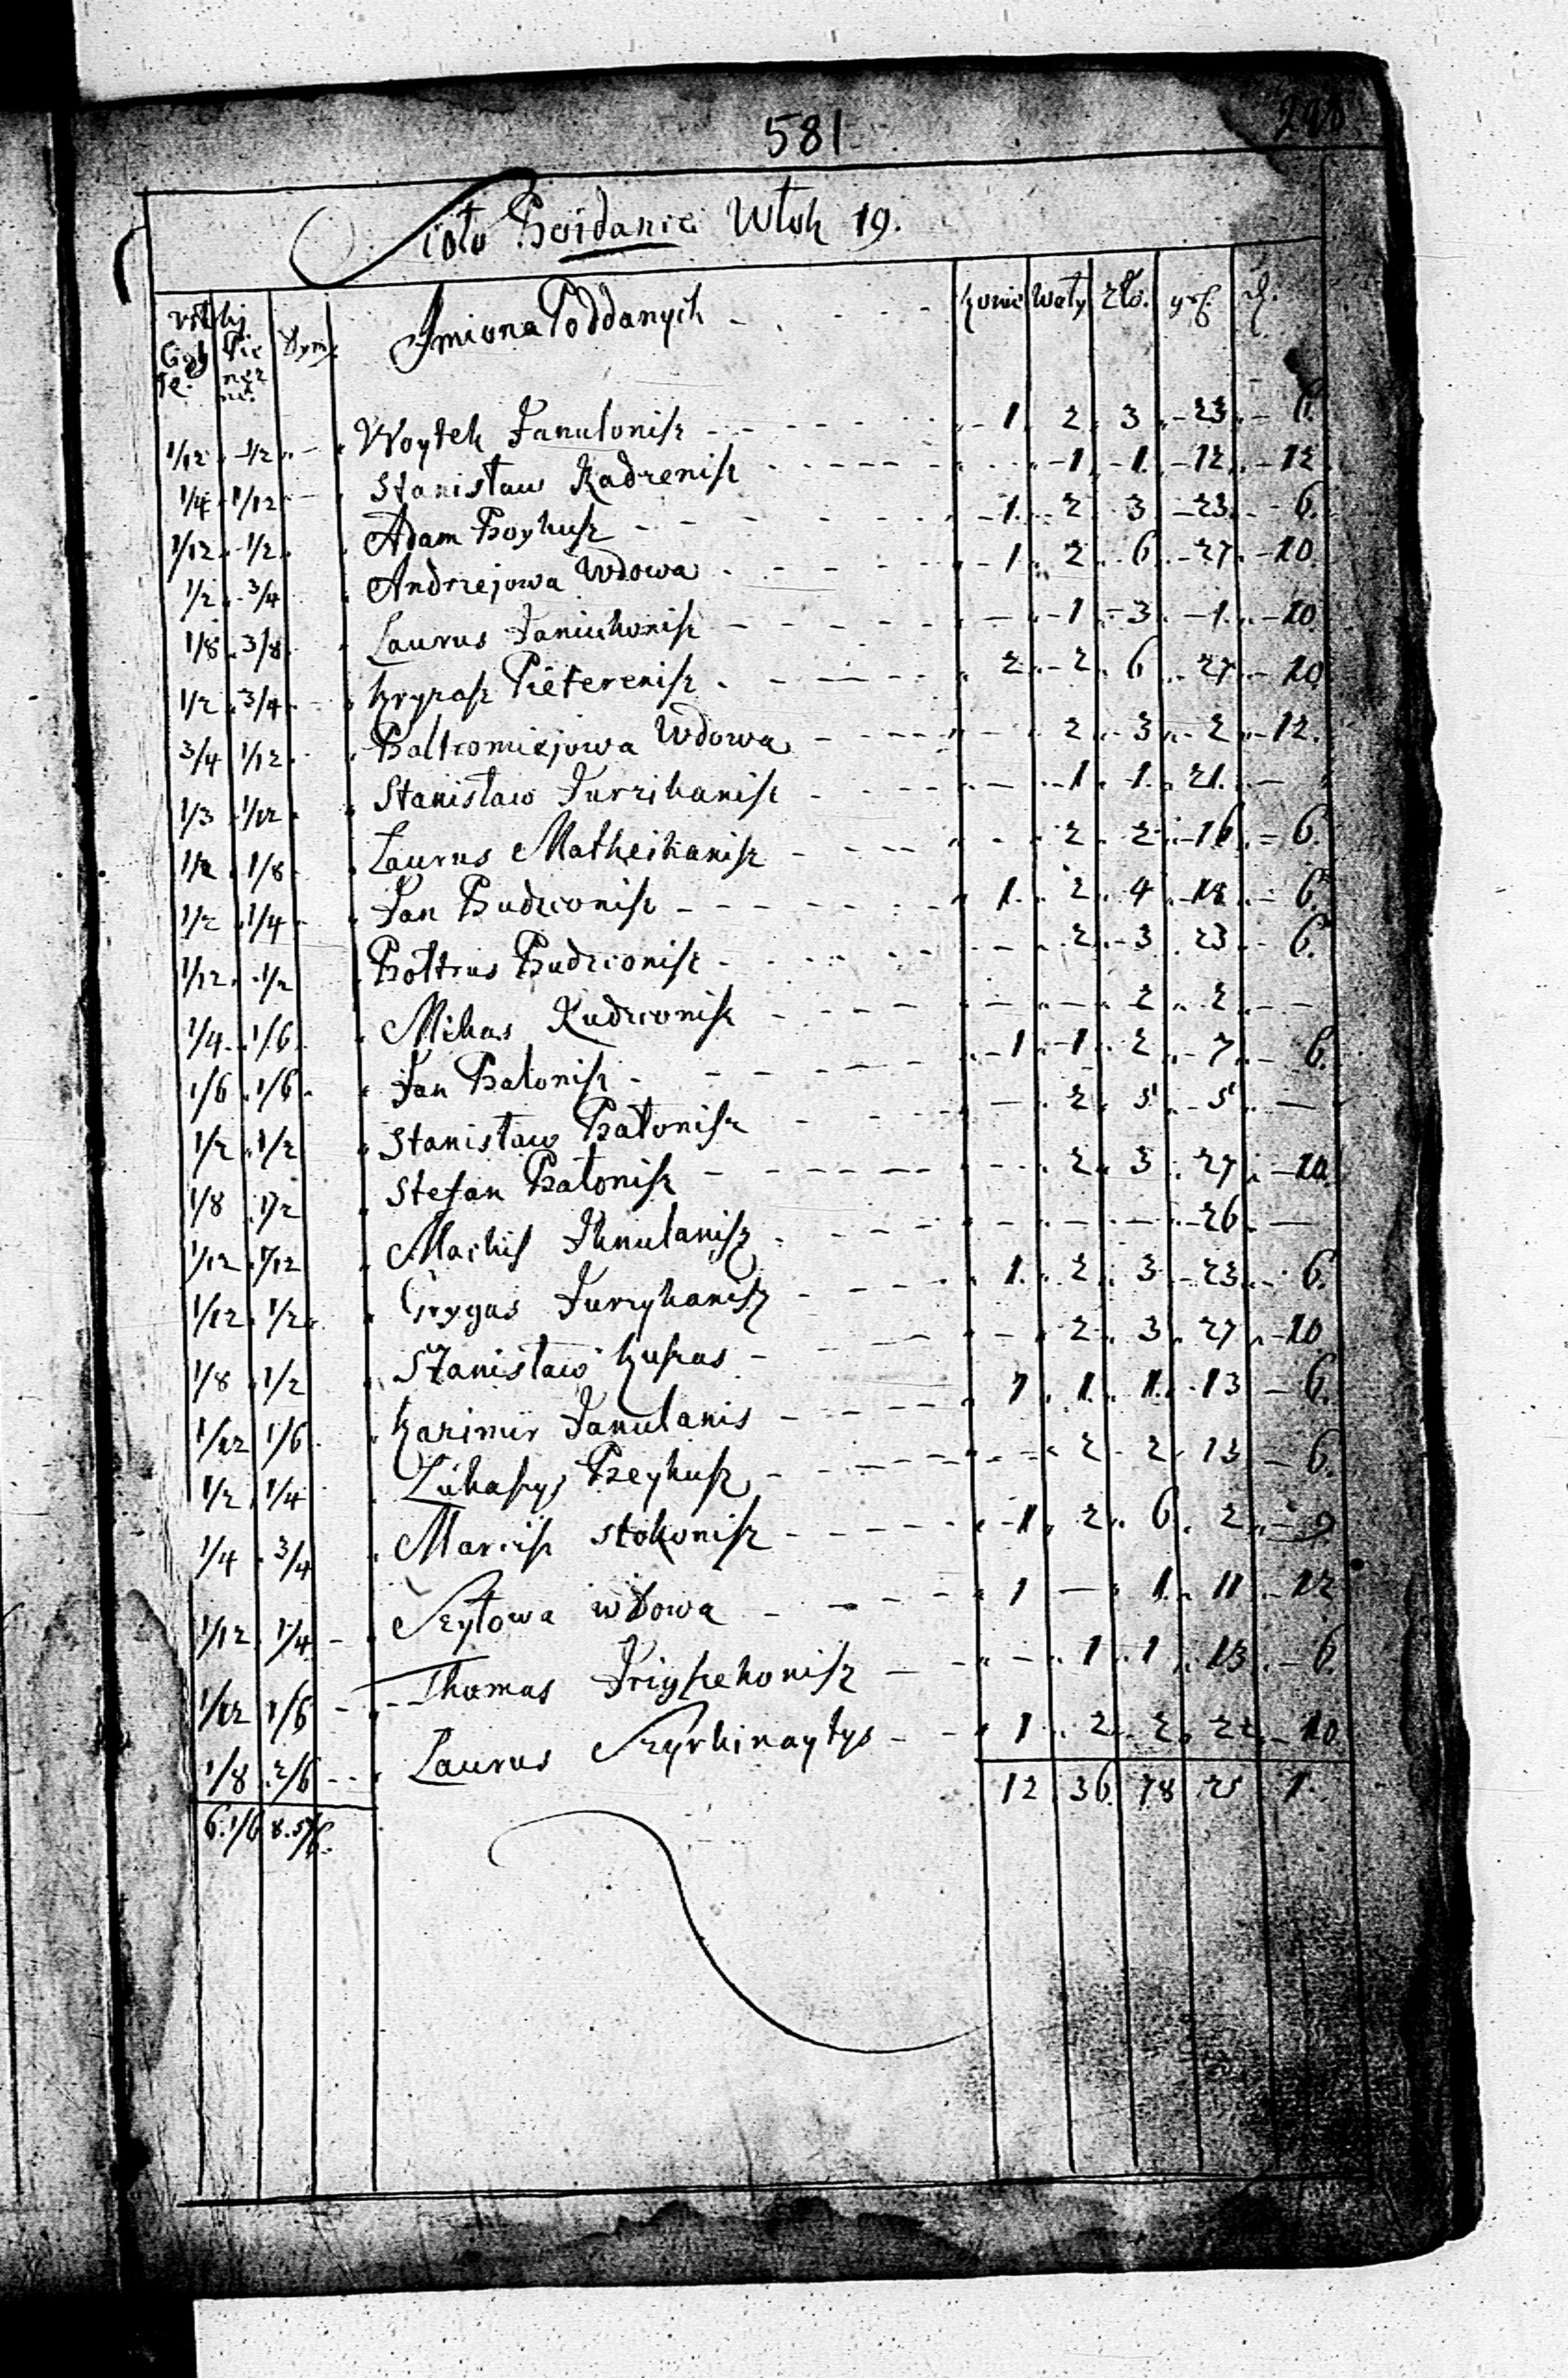 581
Sioło Boidanie Włok 19.
Włoki
Cięgłe. Pienięzne. Dymy. Imiona Poddanych - - - konie Woły Zło. grß. d.
1/12 1/2 Woytek Janulonisz - - - 1 2 3 23 6.
1/4 1/12 Stanisław Kadzenisz - - - 1 1 12 12
1/12 1/2 Adam Boykusz - - - 1 2 3 23 6.
1/2 3/4 Andrzejowa Wdowa - - - 1 2 6 27 10.
1/8 3/8 Laurus Janiukonisz - - - 1 3 1 10.
1/2 3/4 Kryzasz Pieterenisz - - - 2 2 6 27 10
3/4 1/12 Baltromiejowa Wdowa - - - 2 3 2 12.
1/3 1/12 Stanisław Jurzikanisz - - - 1 1 21. —
1/2 1/8 Laurus Matheikanisz - - - 2 2 16 6.
1/2 1/4 Jan Budrconisz - - - 1 2 4 18 6.
1/12 1/2 Bołtrus Budrconisz - - - 2 3 23 6.
1/4 1/6 Mikas Kudrconisz - - - — 2 2 —
1/6 1/6 Jan Batonisz - - - 1 1 2 7 6.
1/2 1/2 Stanisław Batonisz - - - 2 5 5 —
1/8 1/2 Stefan Batonisz - - - 2 3 27 10.
1/12 1/12 Mackis Iknulanisz - - - — — 26 —
1/12 1/2 Grygas Jurzykanisz - - - 1 2 3 23 6.
1/8 1/2 Stanisław Kuszas - - - 2 3 27 10
1/12 1/6 Kazimir Janulanis - - - 1 1 1 13 6.
1/2 1/4 Łukaszys Beykusz - - - 2 2 13 6.
1/4 3/4 Marcisz Stokonisz - - - 1 2 6 2 9
1/12 1/4 Szytowa wdowa - - - 1 — 1 11 12
1/12 1/6 Thomas Jrigszekonisz - - - 1 1 13 6.
1/8 2/6 Laurus Szyrkinaytys - - - 1 2 2 22 10
6.1/6 8.5/6. 12 36 78 25 1.